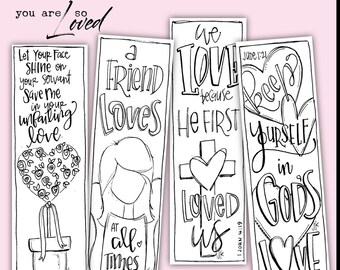 you are so
Loved
Let Your Face
SHINE on
your servant
Save me
in your
unfailing
love
a
FRIEND
LOVES
At
all
Times
we
LOVE
because
HE FIRST
LOVED
us
1 JOHN 4:19
JUDE 1:21
Keep
yourself
in
GOD'S
LOVE